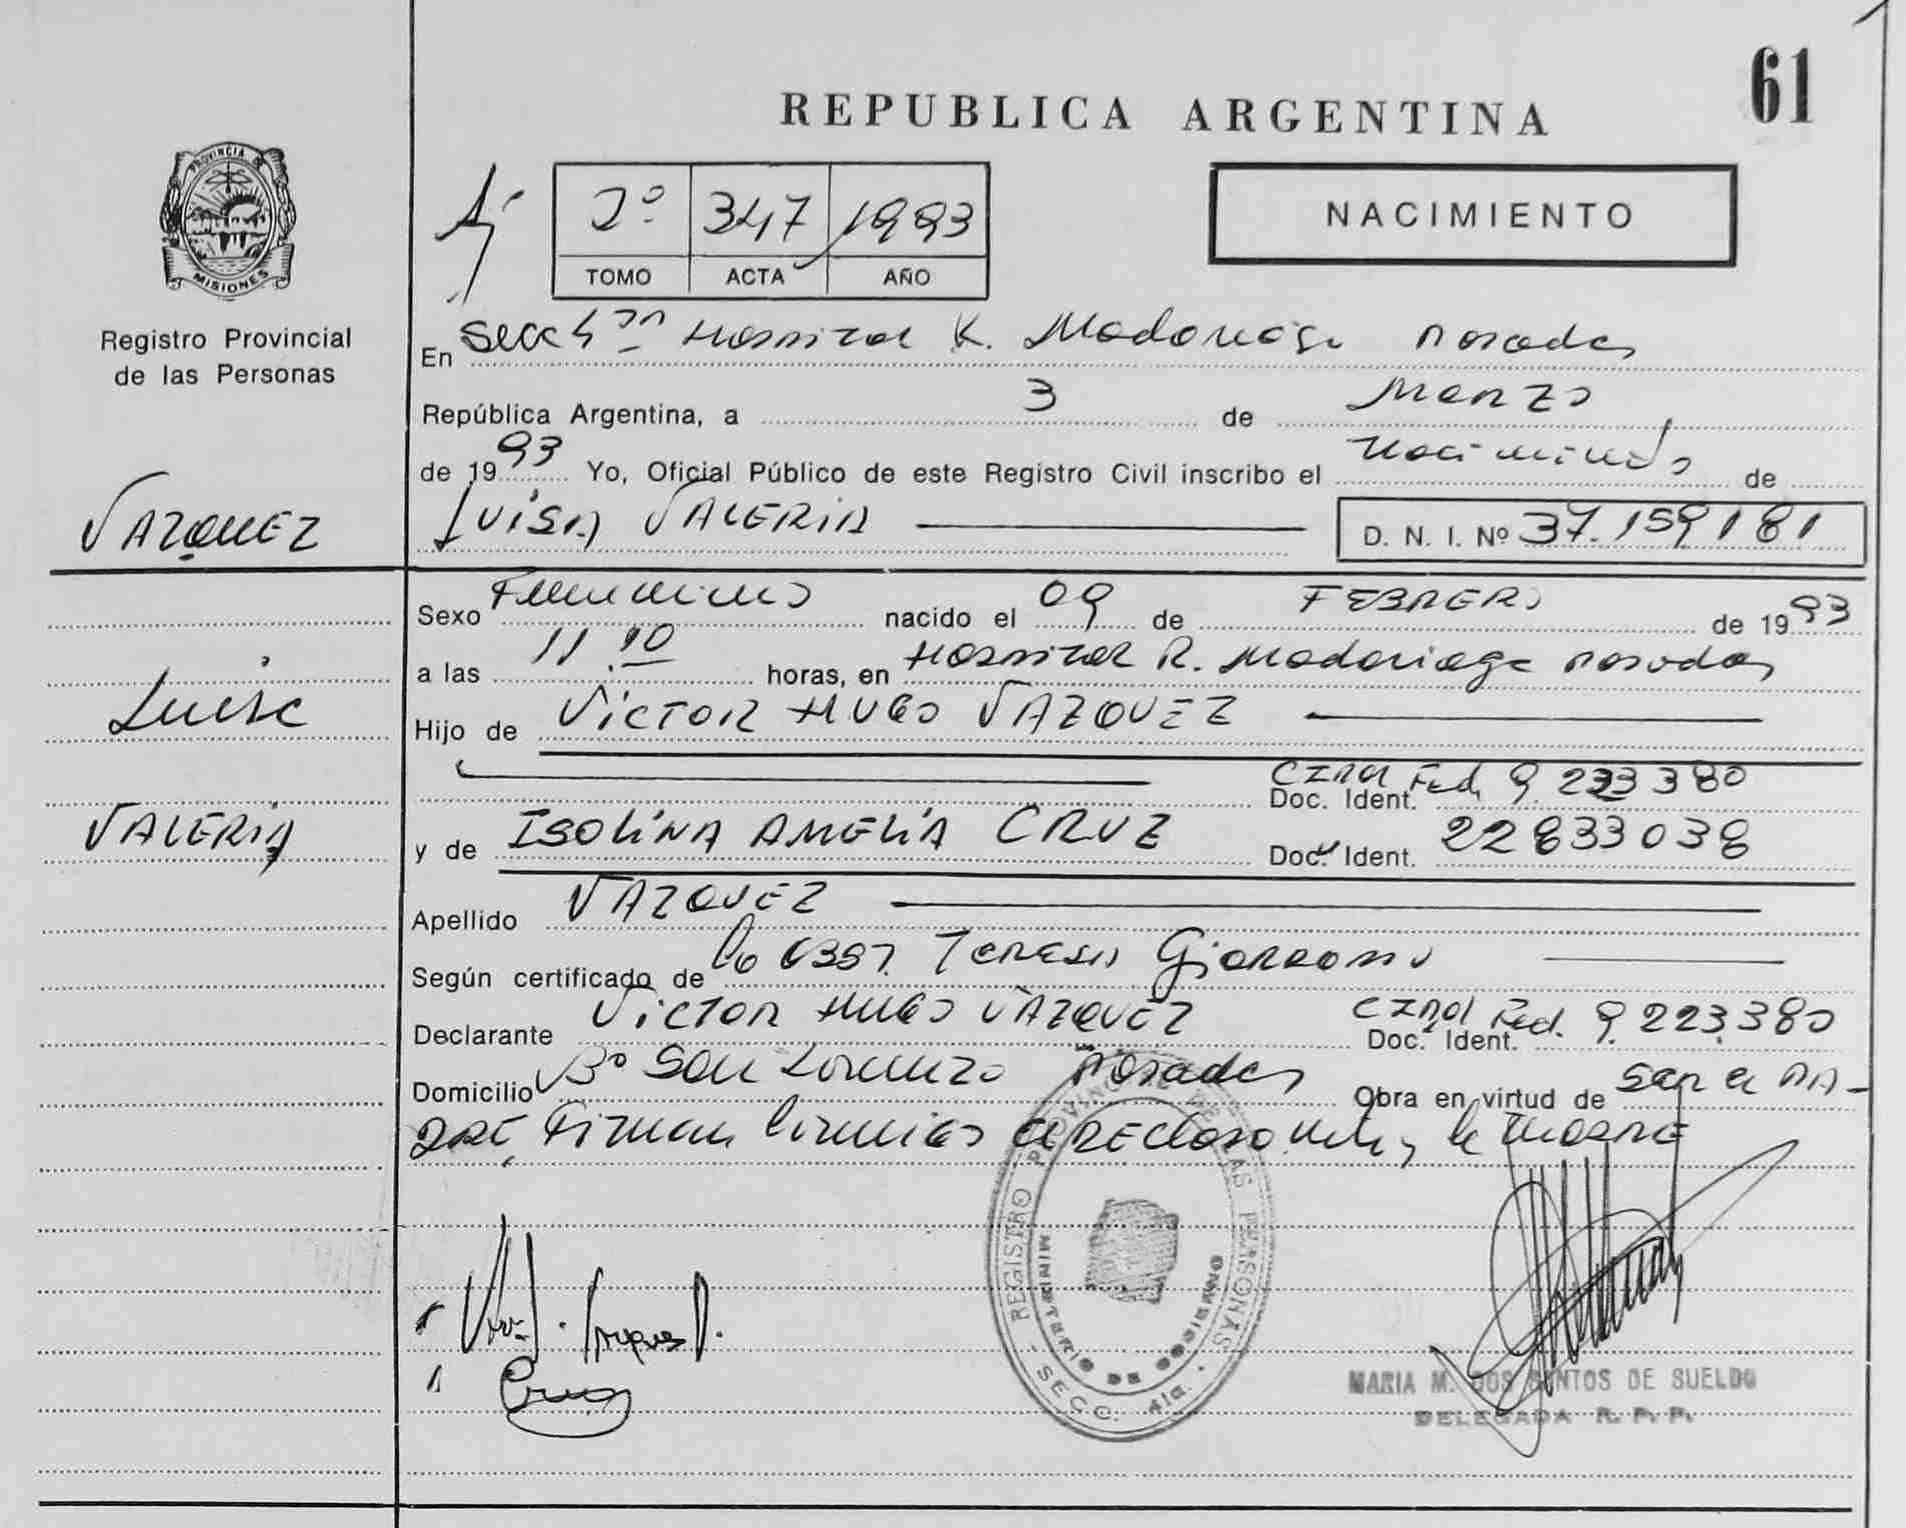 61
REPUBLICA ARGENTINA
PROVINCIA DE
MISIONES
Registro Provincial
de las Personas
2º 347 1993
TOMO ACTA AÑO
NACIMIENTO
En Secc 4ta Hospital R. Madariaga Posadas
República Argentina, a 3 de Marzo
de 1993 Yo, Oficial Público de este Registro Civil inscribo el Nacimiento de
VAZQUEZ
LUISA VALERIA
D. N. I. Nº 37.159181
Sexo Femenino nacido el 09 de FEBRERO de 1993
a las 11.10 horas, en Hospital R. Madariaga Posadas
Luisa
Hijo de VICTOR HUGO VAZQUEZ
Doc. Ident. Fed. 9.223380
VALERIA
y de ISOLINA AMELIA CRUZ Doc. Ident. 22833038
Apellido VAZQUEZ
Según certificado de la Obst. TERESA
Declarante VICTOR HUGO VAZQUEZ Doc. Ident. Fed. 9.223.380
Domicilio Bº San Lorenzo Posadas Obra en virtud de ser el PA-
DRE, Firman conmigo el DECLARANTE y la MADRE
REGISTRO PROVINCIAL DE LAS PERSONAS
MINISTERIO DE GOBIERNO
- SECC. 4ta. -
Cruz
MARIA M. DOS SANTOS DE SUELDO
DELEGADA R. P. P.